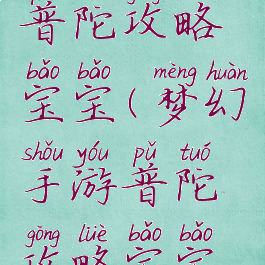 普陀攻略
bǎo bǎo mèng huàn
宝宝(梦幻
shǒu yóu pǔ tuó
手游普陀
gōng lüè bǎo bǎo
攻略宝宝